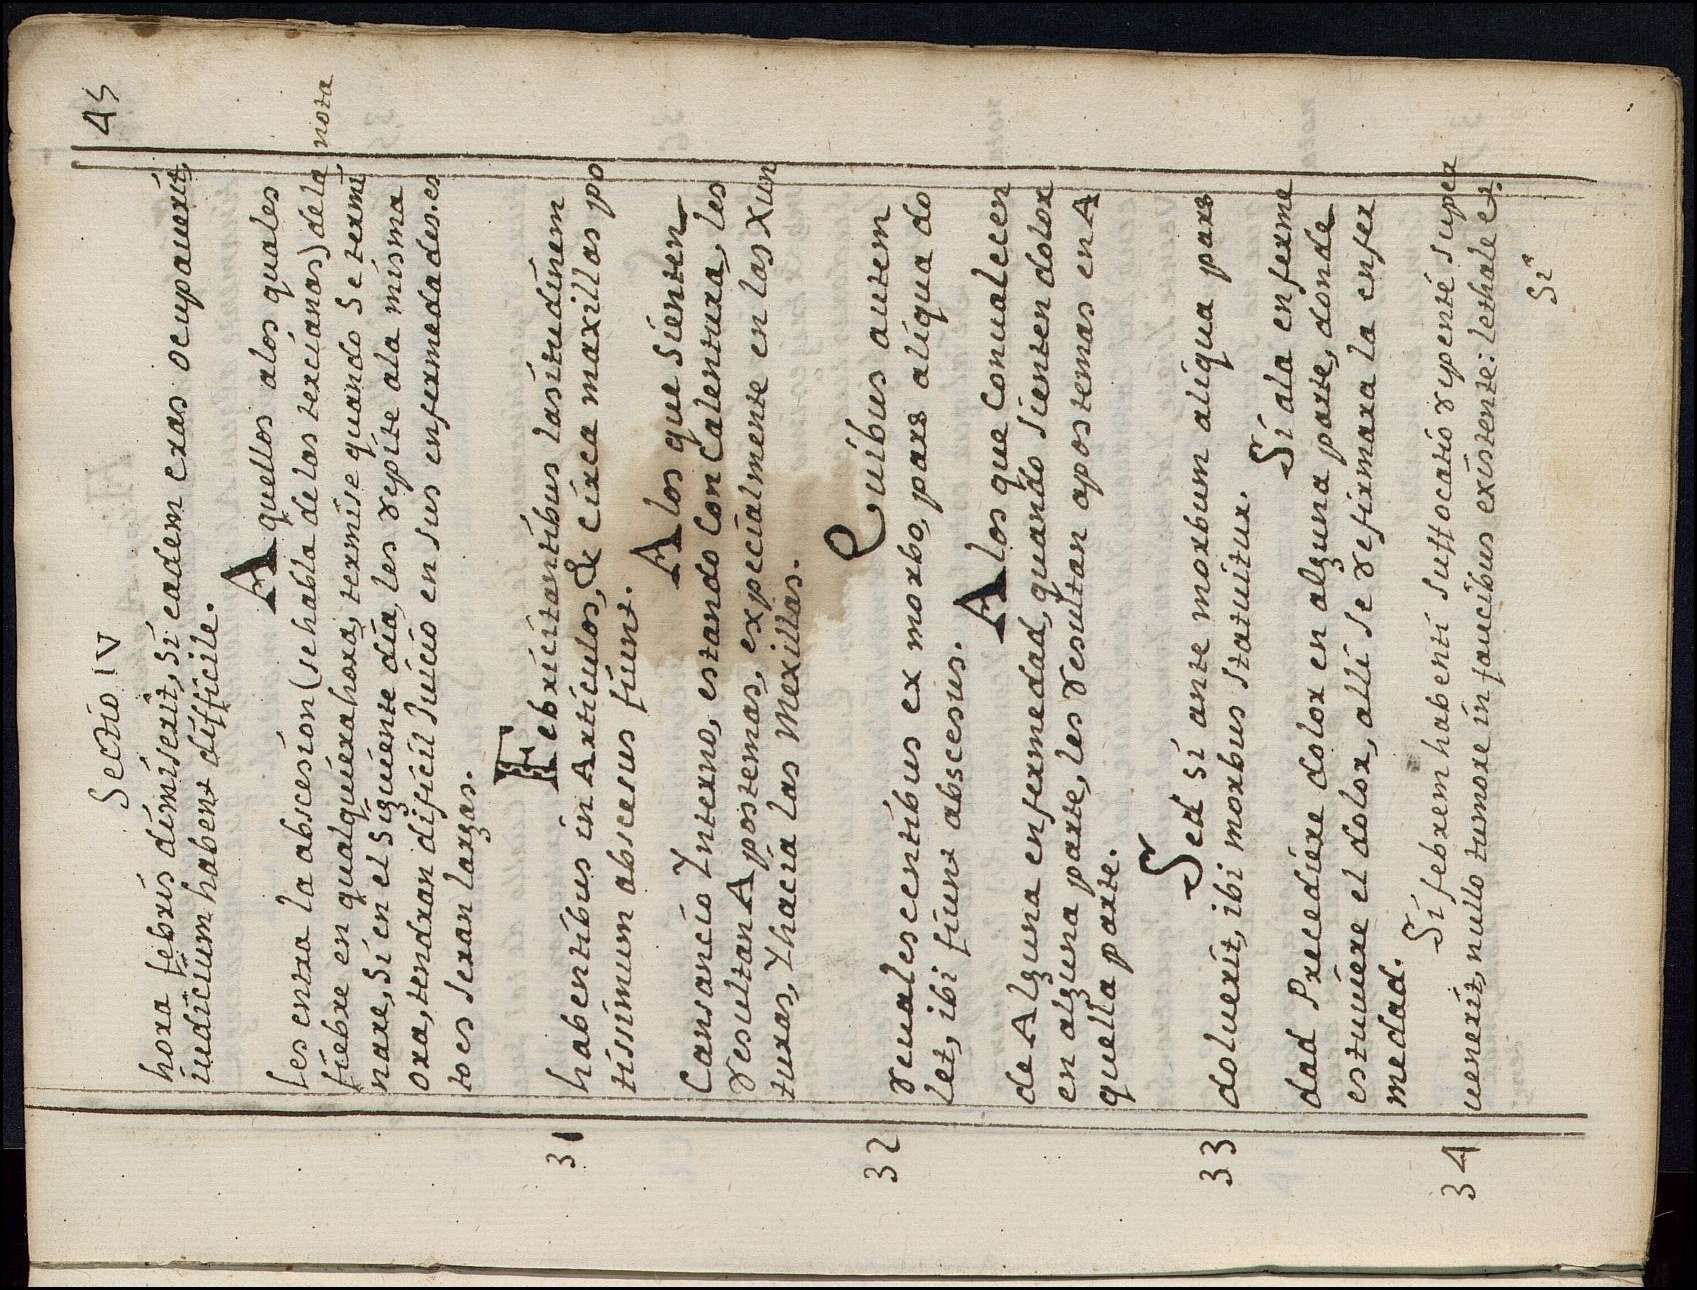 Sectio IV
45
hora febris dimiserit, si eadem eras ocupauerit,
iudicium habent difficile.
Aquellos alos quales
les entra la abscesion (se habla de las tercianas) dela nota
fiebre en qualquiera hora, termise quando se termi
nare, si en el siguiente dia, les repite ala misma
ora, tendran dificil Juicio en sus enfermedades. es
to es seran largas.
31 Febricitantibus lasitudinem
habentibus in Articulos, & circa maxillas po
tissimum abscesus fiunt.
Alos que sienten
Cansancio Ynterno, estando Con Calentura, les
resultan Apostemas, expecialmente en las Xun
turas, Yhacia las Mexillas.
32 Quibus autem
reualescentibus ex morbo, pars aliqua do
let, ibi fiunt abscesus.
Alos que Conualecen
de Alguna enfermedad, quando sienten dolor
en alguna parte, les resultan apostemas en A
quella parte.
33 Sed si ante morbum aliqua pars
doluerit, ibi morbus statuitur.
Si ala enferme
dad Precediere dolor en alguna parte, donde
estuuiere el dolor, alli se refirmara la enfer
medad.
34 Si febrem habenti suffocatio repenté super
uenerit, nullo tumore in faucibus existente: lethale est.
Si